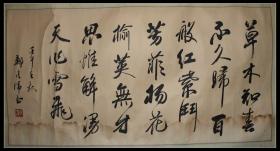 草木知春
不久歸百
般紅紫鬥
芳菲楊花
榆莢無才
思惟解漫
天作雪飛